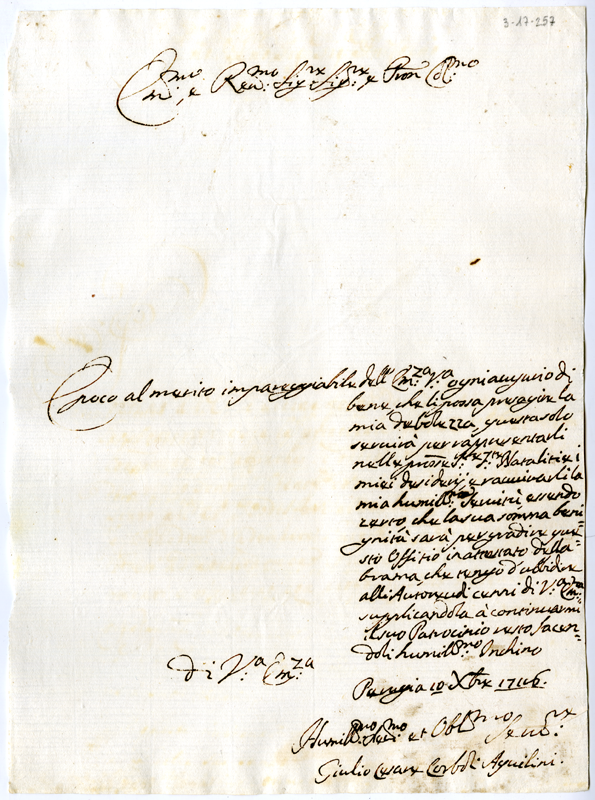 3-17-257
Em:mo, e Reu:mo Sig:re Sig:re, e Pron Col:mo
È poco al merito impareggiabile dell'Em:za V:a ogni augurio di
bene, che li possa presagire la
mia debolezza, questa solo
seruirà per rappresentarli
nelle pros.e S.te Feste Natalitie i
miei desiderij, e rauuiuarli la
mia humill:ma Seruitù, essendo
certo, che la sua somma beni-
gnità sarà per gradire que-
sto Offitio in attestato della
brama, che tengo d'ubbidire
alli Autoreuoli cenni di V:a Em:za
supplicandola à continuarmi
il suo Patrocinio resto facen-
doli humill:mo Inchino
Di V:a Em:za
Perugia 10 Xbre 1716.
Humill:mo Deu:mo et Obl:mo Seru:re
Giulio Cesare Corboli Aquilini.